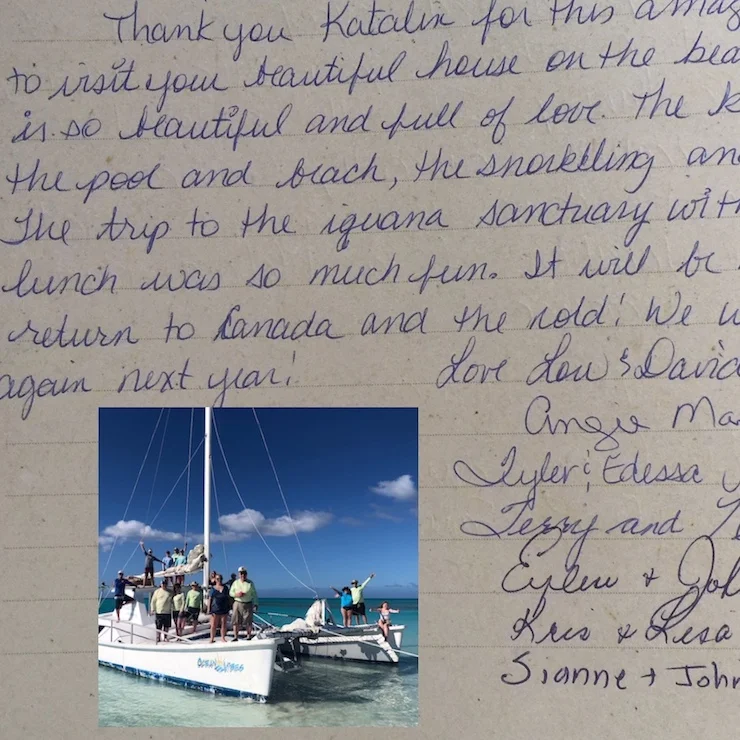 Thank you Katalin for this amaz
to visit your beautiful house on the bea
is so beautiful and full of love. The k
the pool and beach, the snorkelling an
The trip to the iguana sanctuary with
lunch was so much fun. It will be
return to Canada and the cold! We w
again next year!
Love Lou & David
Angie Ma
Tyler & Edessa
Terry and
+ Joh
Kris & Lisa
Sianne + John